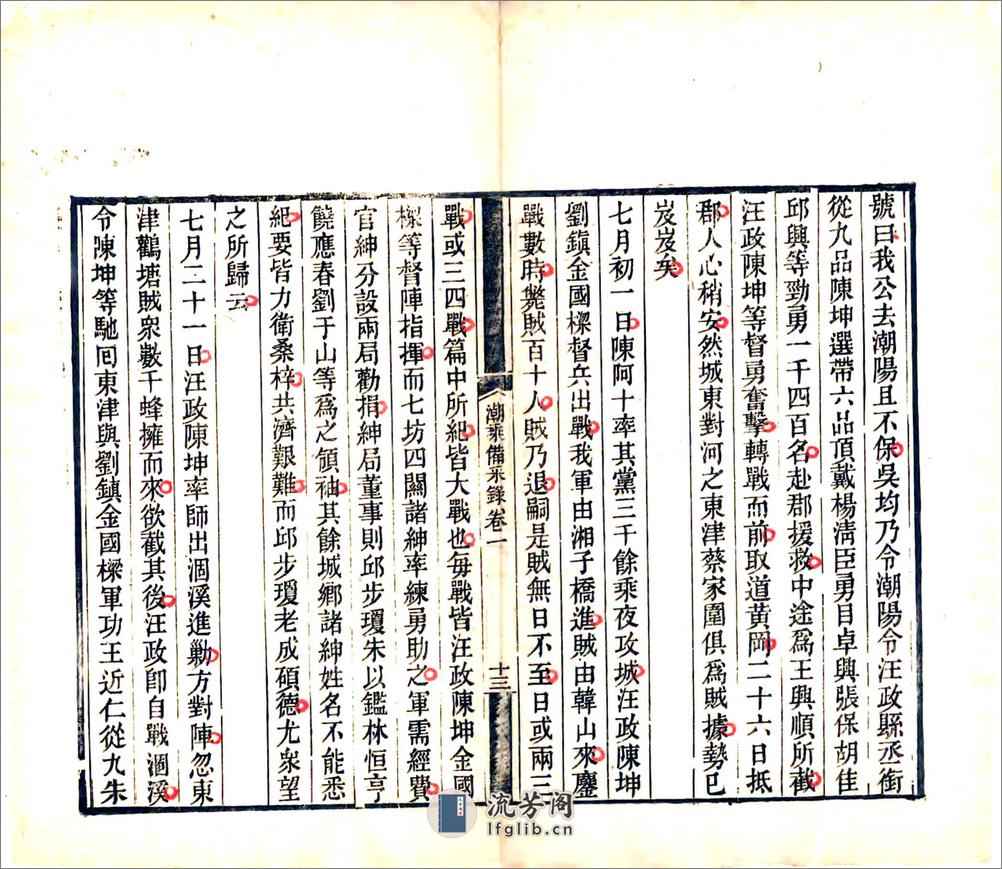 號曰我公去潮陽且不保吳均乃令潮陽令汪政縣丞銜
從九品陳坤選帶六品頂戴楊淸臣勇目卓興張保胡佳
邱興等勁勇一千四百名赴郡援救中途爲王興順所截
汪政陳坤等督勇奮擊轉戰而前取道黃岡二十六日抵
郡人心稍安然城東對河之東津蔡家圍俱爲賊據勢已
岌岌矣
七月初一日陳阿十率其黨三千餘乘夜攻城汪政陳坤
劉鎭金國樑督兵出戰我軍由湘子橋進賊由韓山來鏖
戰數時斃賊百十人賊乃退嗣是賊無日不至日或兩三
潮乘備采錄卷一
十三
戰或三四戰篇中所紀皆大戰也每戰皆汪政陳坤金國
樑等督陣指揮而七坊四關諸紳率練勇助之軍需經費
官紳分設兩局勸捐紳局董事則邱步瓊朱以鑑林恒亨
饒應春劉于山等爲之領袖其餘城鄉諸紳姓名不能悉
紀要皆力衛桑梓共濟艱難而邱步瓊老成碩德尤衆望
之所歸云
七月二十一日汪政陳坤率師出涸溪進勦方對陣忽東
津鸛塘賊衆數千蜂擁而來欲截其後汪政卽自戰涸溪
令陳坤等馳囘東津與劉鎭金國樑軍功王近仁從九朱
流芳阁
lfglib.cn